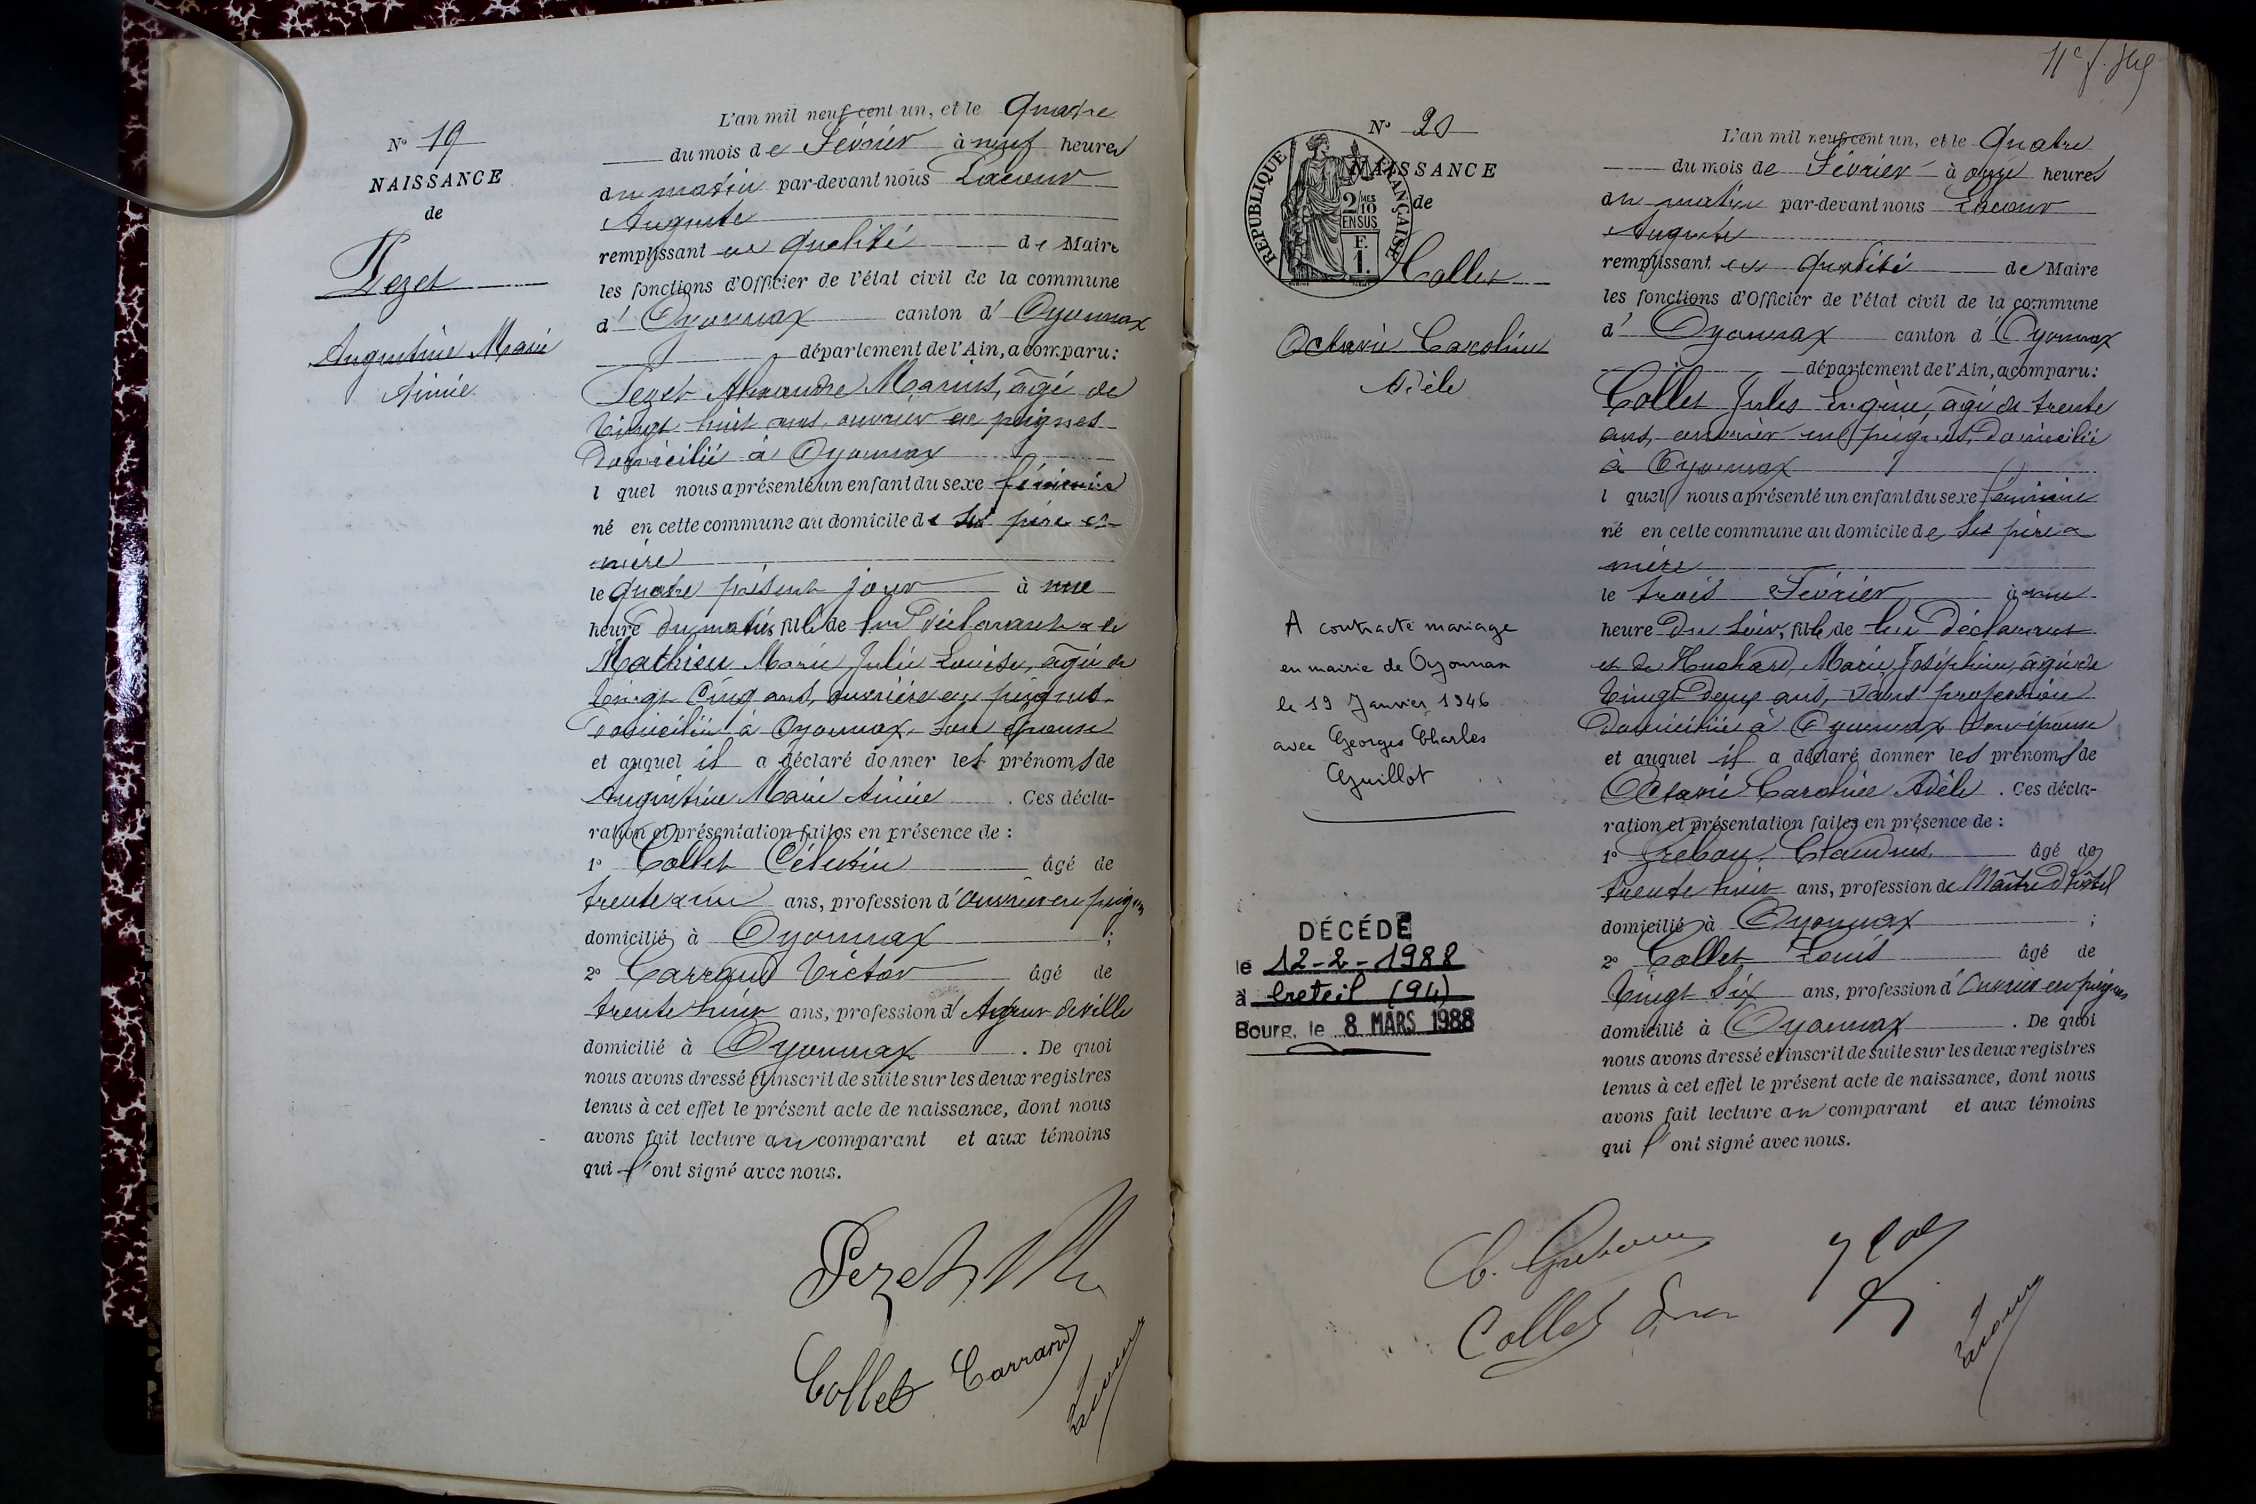 N° 19
NAISSANCE
de
Pezet
Augustine Marie
Aimée
L'an mil neuf cent un, et le Quatre
du mois de Février à neuf heures
du matin par-devant nous Lacour
Auguste
remplissant en qualité de Maire
les fonctions d'Officier de l'état civil de la commune
d' Oyonnax canton d' Oyonnax
département de l'Ain, a comparu:
Pezet Alexandre Marius, âgé de
vingt huit ans, ouvrier en peignes
domicilié à Oyonnax
l quel nous a présenté un enfant du sexe féminin
né en cette commune au domicile de ses père et
mère
le quatre présent jour à une
heure du matin, fille de lui déclarant et de
Mathieu Marie Julie Louise, âgée de
vingt cinq ans, ouvrière en peignes
domiciliée à Oyonnax son épouse
et auquel il a déclaré donner les prénoms de
Augustine Marie Aimée . Ces décla-
ration et présentation faites en présence de :
1° Collet Célestin âgé de
trente et un ans, profession d'ouvrier en peignes
domicilié à Oyonnax ;
2° Carrand Victor âgé de
trente huit ans, profession d' Agent de ville
domicilié à Oyonnax . De quoi
nous avons dressé et inscrit de suite sur les deux registres
tenus à cet effet le présent acte de naissance, dont nous
avons fait lecture au comparant et aux témoins
qui l' ont signé avec nous.
Pezet
Collet Carrand
Lacour
11e f.
N° 20
NAISSANCE
de
RÉPUBLIQUE FRANÇAISE
2/10 MES
EN SUS
F.
1.
Collet
Octavie Caroline
Adèle
A contracté mariage
en mairie de Oyonnax
le 19 Janvier 1946
avec Georges Charles
Guillot
DÉCÉDÉ
le 12-2-1988
à Creteil (94)
Bourg, le 8 MARS 1988
L'an mil neuf cent un, et le Quatre
du mois de Février à onze heures
du matin par-devant nous Lacour
Auguste
remplissant en qualité de Maire
les fonctions d'Officier de l'état civil de la commune
d' Oyonnax canton d Oyonnax
département de l'Ain, a comparu:
Collet Jules Eugène, âgé de trente
ans, ouvrier en peignes, domicilié
à Oyonnax
l quel nous a présenté un enfant du sexe féminin
né en cette commune au domicile de ses père et
mère
le trois Février à une
heure du soir, fille de lui déclarant
et de Huchard, Marie Joséphine, âgée de
vingt deux ans, sans profession
domiciliée à Oyonnax son épouse
et auquel il a déclaré donner les prénoms de
Octavie Caroline Adèle . Ces décla-
ration et présentation faites en présence de :
1° Claudius âgé de
trente huit ans, profession de Maître d'hôtel
domicilié à Oyonnax ;
2° Collet Louis âgé de
vingt six ans, profession d'ouvrier en peignes
domicilié à Oyonnax . De quoi
nous avons dressé et inscrit de suite sur les deux registres
tenus à cet effet le présent acte de naissance, dont nous
avons fait lecture au comparant et aux témoins
qui l' ont signé avec nous.
Collet
Lacour